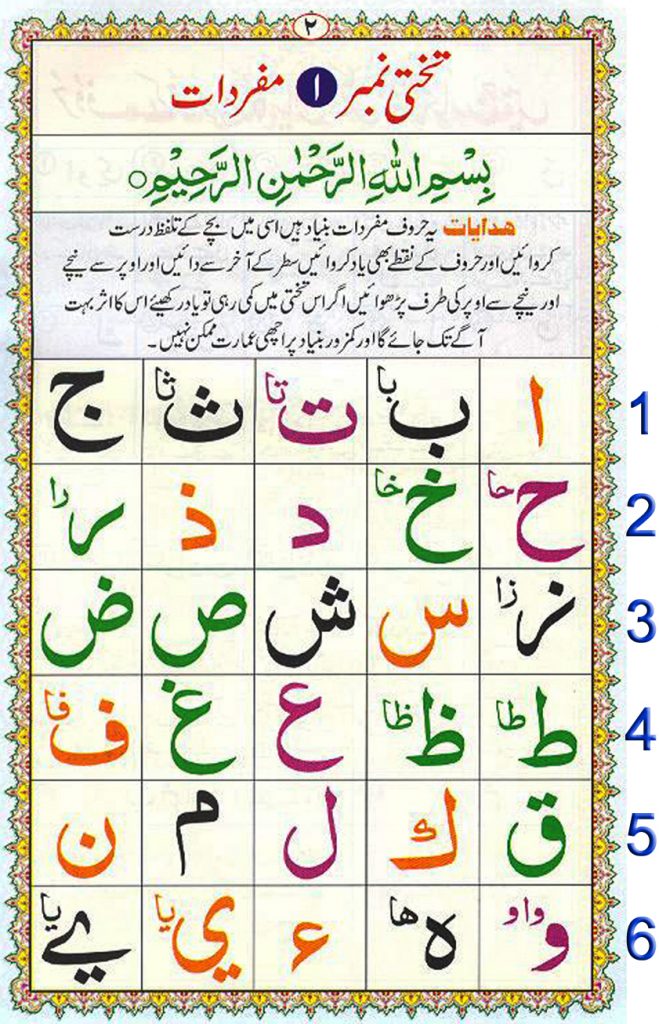 ۲
تختی نمبر ۱ مفردات
بِسْمِ اللهِ الرَّحْمٰنِ الرَّحِيْمِ ○
ھدایات یہ حروف مفردات بنیاد ہیں اسی میں بچے کے تلفظ درست
کروائیں اور حروف کے نقطے بھی یاد کروائیں سطر کے آخر سے دائیں اور اوپر سے نیچے
اور نیچے سے اوپر کی طرف پڑھوائیں اگر اس تختی میں کمی رہی تو یاد رکھیئے اس کا اثر بہت
آگے تک جائے گا اور کمزور بنیاد پر اچھی عمارت ممکن نہیں۔
ا ب با ت تا ث ثا ج 1
ح حا خ خا د ذ ر را 2
ز زا س ش ص ض 3
ط طا ظ ظا ع غ ف فا 4
ق ك ل م ن 5
و واو ه ها ء ي يا ے يا 6